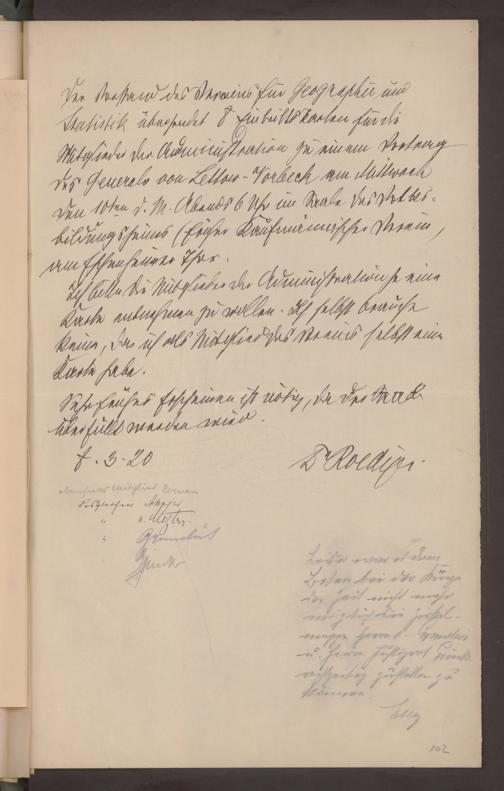 Der Vorstand des Vereins für Geographie und
Statistik übersendet 8 Eintrittskarten für die
Mitglieder der Administration zu einem Vortrag
des Generals von Lettow-Vorbeck am Mittwoch
den 10ten d. M. Abends 6 Uhr im Saale des Volks-
bildungsheims (früher Kaufmännischer Verein,
am Eschenheimer Thor.
Ich bitte die Mitglieder der Administration je eine
Karte entnehmen zu wollen. Ich selbst brauche
keine, da ich als Mitglied des Vereins selbst eine
Karte habe.
Sehr frühes Erscheinen ist nötig, da der Saal
überfüllt werden wird.
8.3.20
Dr Roediger.
Mitglied
desgleichen
" v. Metzler
"
Leider war es dem
Boten bei der Kürze
der Zeit nicht mehr
möglich die
mappe Herrn
u. Herrn Justizrat
rechtzeitig zustellen zu
können.
102